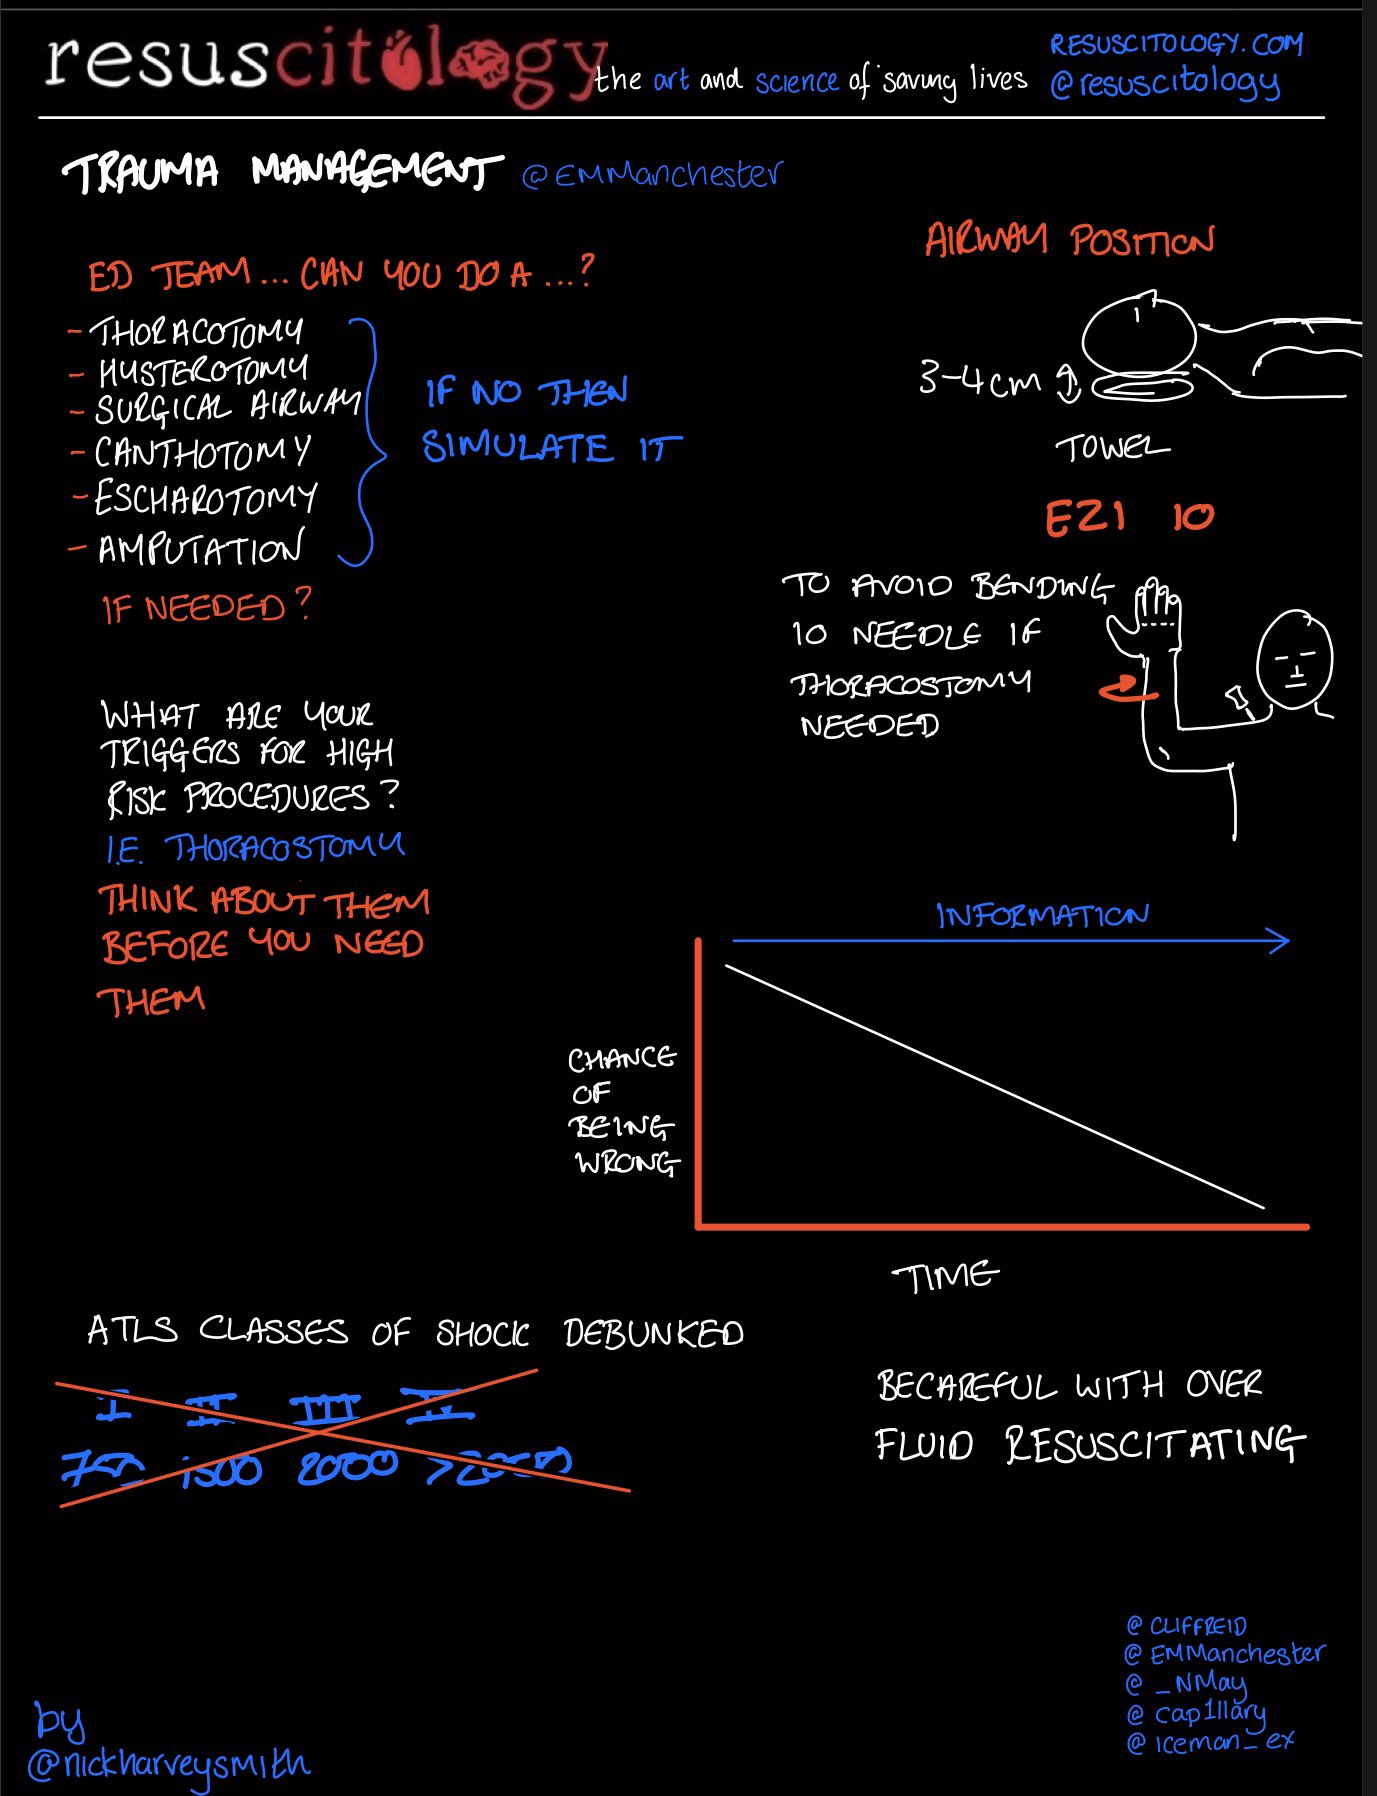 resuscitology
the art and science of saving lives
RESUSCITOLOGY.COM
@resuscitology
TRAUMA MANAGEMENT @EMManchester
ED TEAM... CAN YOU DO A ...?
- THORACOTOMY
- HYSTEROTOMY
- SURGICAL AIRWAY
- CANTHOTOMY
- ESCHAROTOMY
- AMPUTATION
IF NEEDED?
IF NO THEN
SIMULATE IT
WHAT ARE YOUR
TRIGGERS FOR HIGH
RISK PROCEDURES?
I.E. THORACOSTOMY
THINK ABOUT THEM
BEFORE YOU NEED
THEM
AIRWAY POSITION
3-4cm
TOWEL
EZI IO
TO AVOID BENDING
IO NEEDLE IF
THORACOSTOMY
NEEDED
INFORMATION
CHANCE
OF
BEING
WRONG
TIME
ATLS CLASSES OF SHOCK DEBUNKED
I II III IV
750 1500 2000 >2000
BECAREFUL WITH OVER
FLUID RESUSCITATING
@CLIFFREID
@EMManchester
@_NMay
@cap1llary
@iceman_ex
by
@nickharveysmith